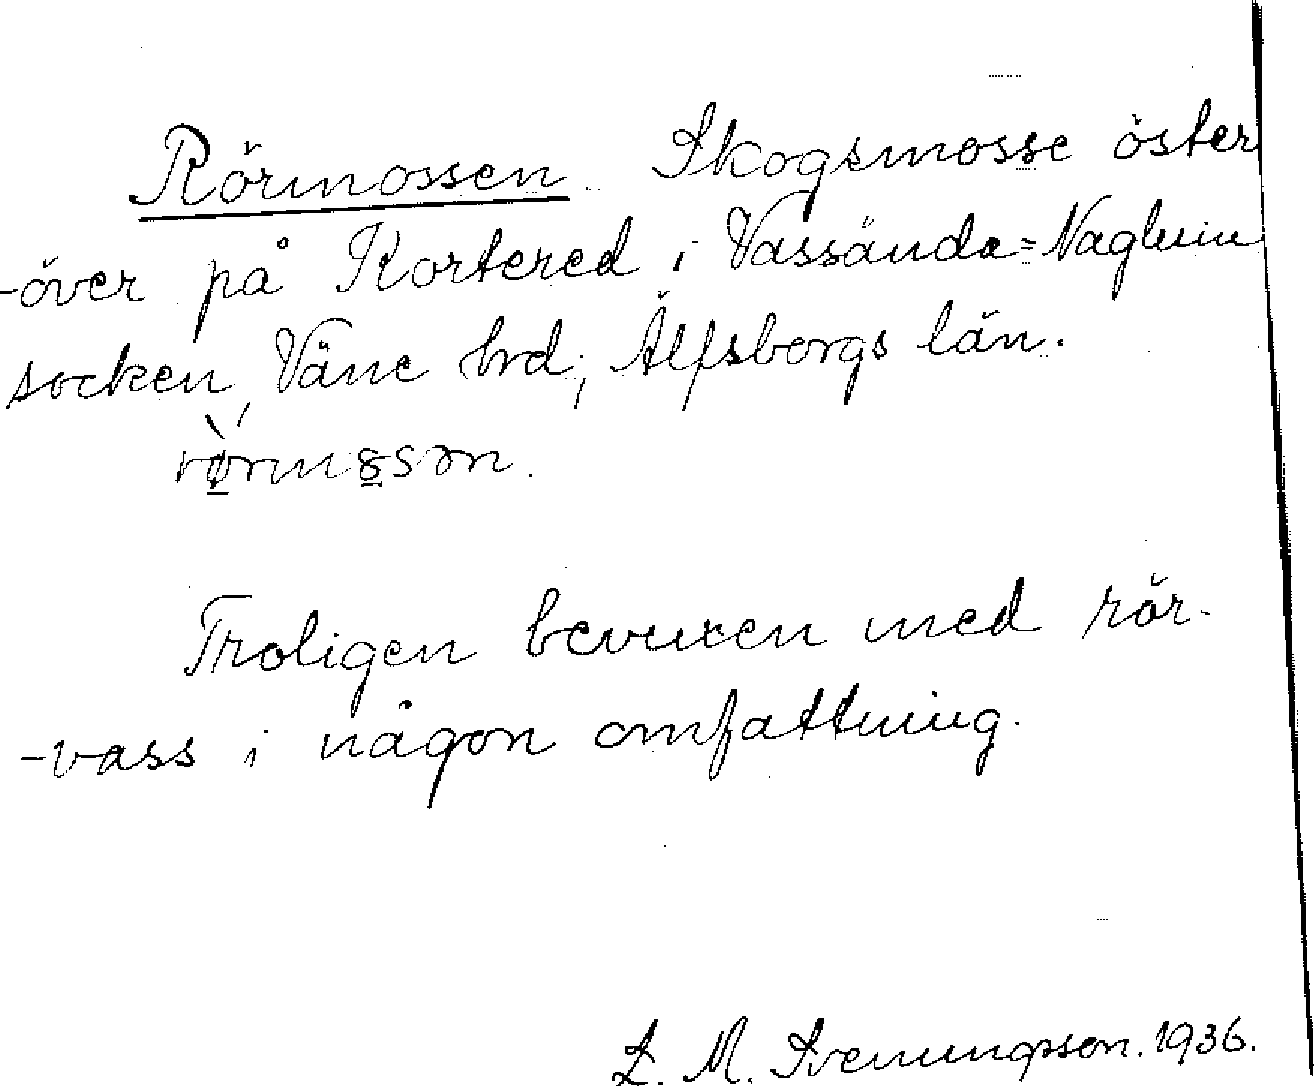 Rörmossen. Skogsmosse öster
-över på Kortered i Vassända=Naglum
socken, Väne hrd, Älfsborgs län.
rø̀rmsən.
Troligen bevuxen med rör-
-vass i någon omfattning.
L. M. Svenungsson. 1936.